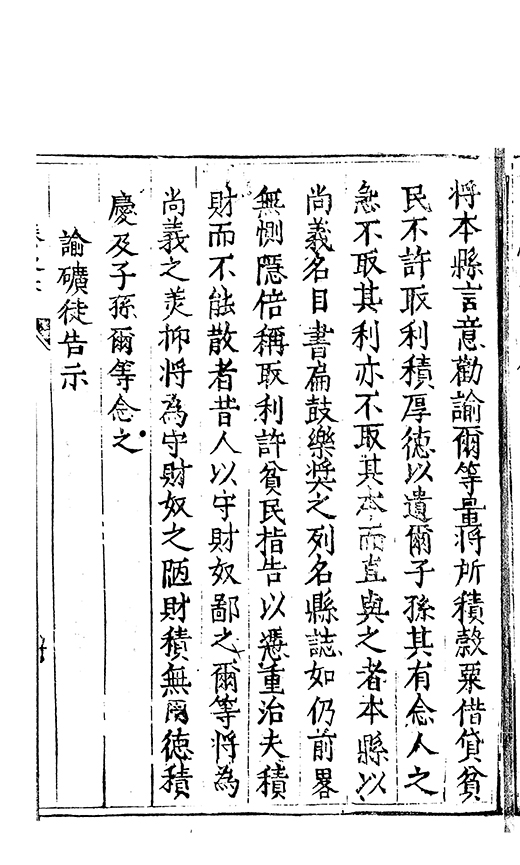 將本縣言意勸諭爾等量將所積穀粟借貸貧
民不許取利積厚徳以遺爾子孫其有念人之
急不取其利亦不取其本而直與之者本縣以
尚義名目書扁鼓樂奬之列名縣誌如仍前畧
無惻隱倍稱取利許貧民指告以憑重治夫積
財而不能散者昔人以守財奴鄙之爾等將為
尚義之羙抑將為守財奴之陋財積無用徳積
慶及子孫爾等念之
諭礦徒告示